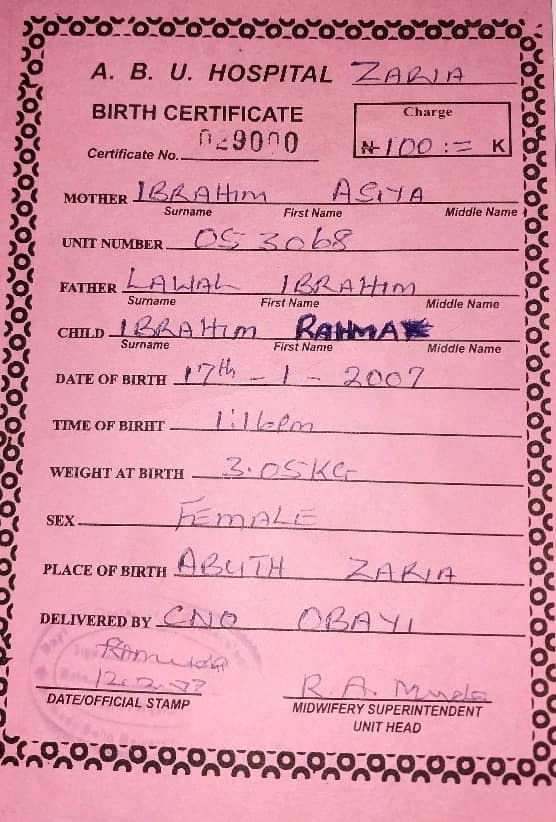 A. B. U. HOSPITAL ZARIA
BIRTH CERTIFICATE
Charge
Certificate No. 029000
₦ 100 := K
MOTHER IBRAHIM ASIYA
Surname First Name Middle Name
UNIT NUMBER OS 3068
FATHER LAWAL IBRAHIM
Surname First Name Middle Name
CHILD IBRAHIM RAHMA
Surname First Name Middle Name
DATE OF BIRTH 17th - 1 - 2007
TIME OF BIRHT 1:16pm
WEIGHT AT BIRTH 3.05KG
SEX FEMALE
PLACE OF BIRTH ABUTH ZARIA
DELIVERED BY CNO OBAYI
R. A.
DATE/OFFICIAL STAMP
MIDWIFERY SUPERINTENDENT
UNIT HEAD